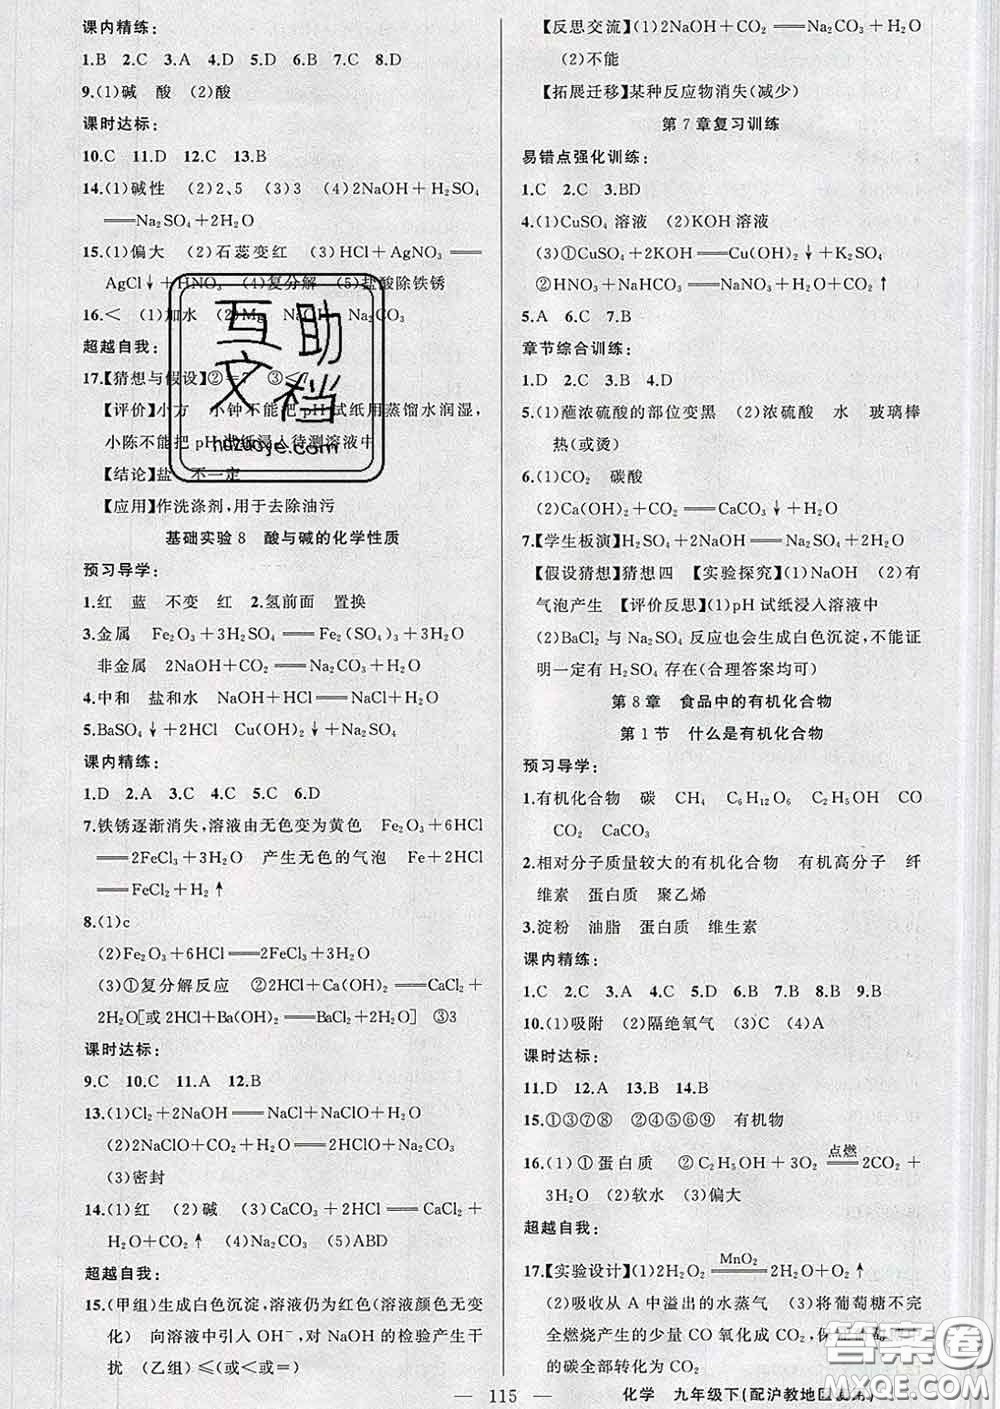 课内精练：
1.B 2.C 3.A 4.D 5.D 6.B 7.C 8.D
9.(1)碱 酸 (2)酸
课时达标：
10.C 11.D 12.C 13.B
14.(1)碱性 (2)2、5 (3)3 (4)2NaOH+H₂SO₄
══Na₂SO₄+2H₂O
15.(1)偏大 (2)石蕊变红 (3)HCl+AgNO₃══
AgCl↓+HNO₃ (4)复分解 (5)盐酸除铁锈
16.< (1)加水 (2)Mg NaOH Na₂CO₃
超越自我：
17.【猜想与假设】②=7 ③<7
【评价】小方 小钟不能把pH试纸用蒸馏水润湿，
小陈不能把pH试纸浸入待测溶液中
【结论】盐 不一定
【应用】作洗涤剂，用于去除油污
基础实验8 酸与碱的化学性质
预习导学：
1.红 蓝 不变 红 2.氢前面 置换
3.金属 Fe₂O₃+3H₂SO₄══Fe₂(SO₄)₃+3H₂O
非金属 2NaOH+CO₂══Na₂CO₃+H₂O
4.中和 盐和水 NaOH+HCl══NaCl+H₂O
5.BaSO₄↓+2HCl Cu(OH)₂↓+2NaCl
课内精练：
1.D 2.A 3.C 4.C 5.C 6.D
7.铁锈逐渐消失，溶液由无色变为黄色 Fe₂O₃+6HCl
══2FeCl₃+3H₂O 产生无色的气泡 Fe+2HCl
══FeCl₂+H₂↑
8.(1)c
(2)Fe₂O₃+6HCl══2FeCl₃+3H₂O
(3)①复分解反应 ②2HCl+Ca(OH)₂══CaCl₂+
2H₂O[或2HCl+Ba(OH)₂══BaCl₂+2H₂O] ③3
课时达标：
9.C 10.C 11.A 12.B
13.(1)Cl₂+2NaOH══NaCl+NaClO+H₂O
(2)2NaClO+CO₂+H₂O══2HClO+Na₂CO₃
(3)密封
14.(1)红 (2)碱 (3)CaCO₃+2HCl══CaCl₂+
H₂O+CO₂↑ (4)Na₂CO₃ (5)ABD
超越自我：
15.(甲组)生成白色沉淀，溶液仍为红色(溶液颜色无变
化) 向溶液中引入OH⁻，对NaOH的检验产生干
扰 (乙组)≤(或<或=)
【反思交流】(1)2NaOH+CO₂══Na₂CO₃+H₂O
(2)不能
【拓展迁移】某种反应物消失(减少)
第7章复习训练
易错点强化训练：
1.C 2.C 3.BD
4.(1)CuSO₄溶液 (2)KOH溶液
(3)①CuSO₄+2KOH══Cu(OH)₂↓+K₂SO₄
②HNO₃+NaHCO₃══NaNO₃+H₂O+CO₂↑
5.A 6.C 7.B
章节综合训练：
1.D 2.C 3.B 4.D
5.(1)蘸浓硫酸的部位变黑 (2)浓硫酸 水 玻璃棒
热(或烫)
6.(1)CO₂ 碳酸
(2)Ca(OH)₂+CO₂══CaCO₃↓+H₂O
7.【学生板演】H₂SO₄+Na₂CO₃══Na₂SO₄+H₂O+CO₂↑
【假设猜想】猜想四 【实验探究】(1)NaOH (2)有
气泡产生 【评价反思】(1)pH试纸浸入溶液中
(2)BaCl₂与Na₂SO₄反应也会生成白色沉淀，不能证
明一定有H₂SO₄存在(合理答案均可)
第8章 食品中的有机化合物
第1节 什么是有机化合物
预习导学：
1.有机化合物 碳 CH₄ C₆H₁₂O₆ C₂H₅OH CO
CO₂ CaCO₃
2.相对分子质量较大的有机化合物 有机高分子 纤
维素 蛋白质 聚乙烯
3.淀粉 油脂 蛋白质 维生素
课内精练：
1.C 2.C 3.A 4.C 5.D 6.D 7.B 8.B 9.B
10.(1)吸附 (2)隔绝氧气 (3)C (4)A
课时达标：
11.D 12.A 13.B 14.B
15.①③⑦⑧ ②④⑤⑥⑨ 有机物
16.(1)①蛋白质 ②C₂H₅OH+3O₂ 点燃══ 2CO₂+
3H₂O (2)软水 (3)偏大
超越自我：
17.【实验设计】(1)2H₂O₂ MnO₂══ 2H₂O+O₂↑
(2)吸收从A中溢出的水蒸气 (3)将葡萄糖不完
全燃烧产生的少量CO氧化成CO₂，保证葡萄糖中
的碳全部转化为CO₂
— 115 — 化学 九年级下(配沪教地区使用)
互助文档
huzuoye.com
答案圈
MXQE.COM